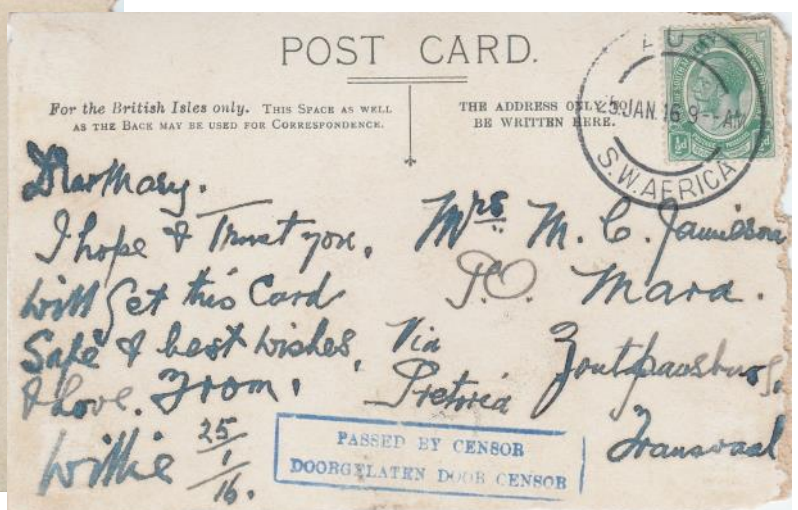 POST CARD.
For the British Isles only. THIS SPACE AS WELL
AS THE BACK MAY BE USED FOR CORRESPONDENCE.
THE ADDRESS ONLY TO
BE WRITTEN HERE.
JAN 16 9 AM
S.W. AFRICA
Dear Mary.
I hope & Trust you,
will get this Card
Safe & best wishes,
& love. From,
Willie 25/1/16.
Mrs M. C. Jamieson
P.O. Mara.
Via Zoutpansburg,
Pretoria
Transvaal
PASSED BY CENSOR
DOORGELATEN DOOR CENSOR